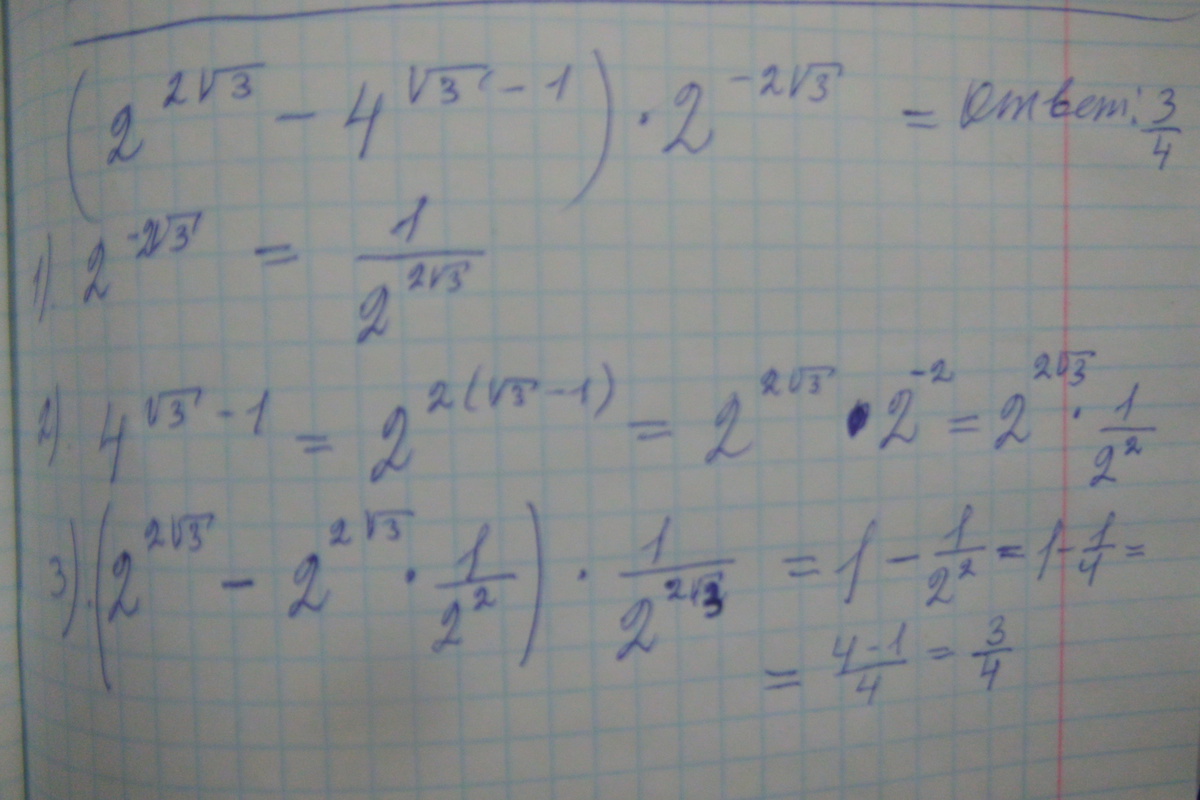 (2^{2√3} - 4^{√3 - 1}) · 2^{-2√3} = Ответ: 3/4
1). 2^{-2√3} = 1/2^{2√3}
2). 4^{√3 - 1} = 2^{2(√3 - 1)} = 2^{2√3} · 2^{-2} = 2^{2√3} · 1/2^2
3). (2^{2√3} - 2^{2√3} · 1/2^2) · 1/2^{2√3} = 1 - 1/2^2 = 1 - 1/4 =
= (4-1)/4 = 3/4